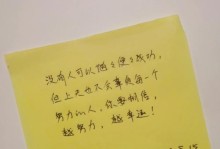 没有人可以随随便便成功,
但上天也不会辜负每一个
努力的人,你要相信,
越努力,越幸运!
5.15